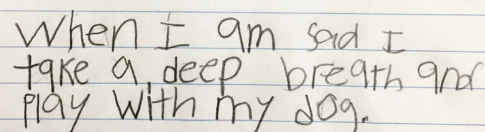 When I am sad I
take a deep breath and
play with my dog.